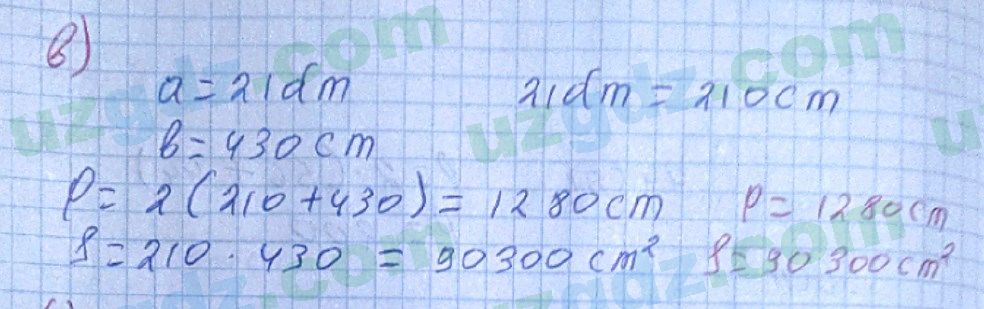 в)
a = 21dm 21dm = 210cm
в = 430cm
P = 2(210+430) = 1280cm P = 1280cm
S = 210 · 430 = 90300cm² S = 90300cm²
uzgdz.com